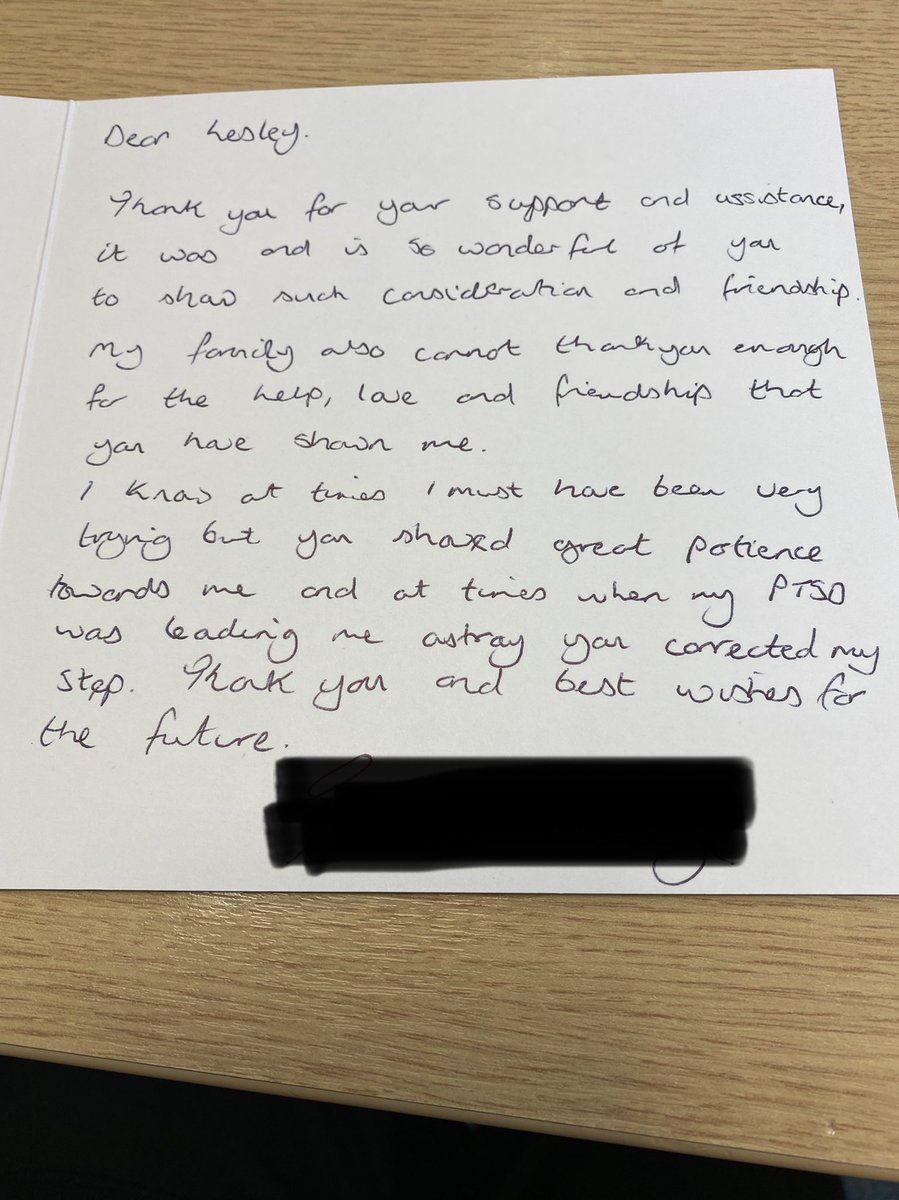 Dear Lesley.
Thank you for your support and assistance,
it was and is so wonderful of you
to show such consideration and friendship.
My family also cannot thank you enough
for the help, love and friendship that
you have shown me.
I know at times I must have been very
trying but you showed great patience
towards me and at times when my PTSD
was leading me astray you corrected my
step. Thank you and best wishes for
the future.